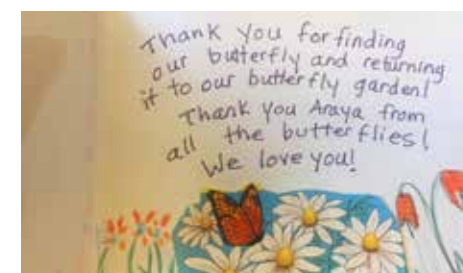 Thank you for finding
our butterfly and returning
it to our butterfly garden!
Thank you Araya from
all the butterflies!
We love you!